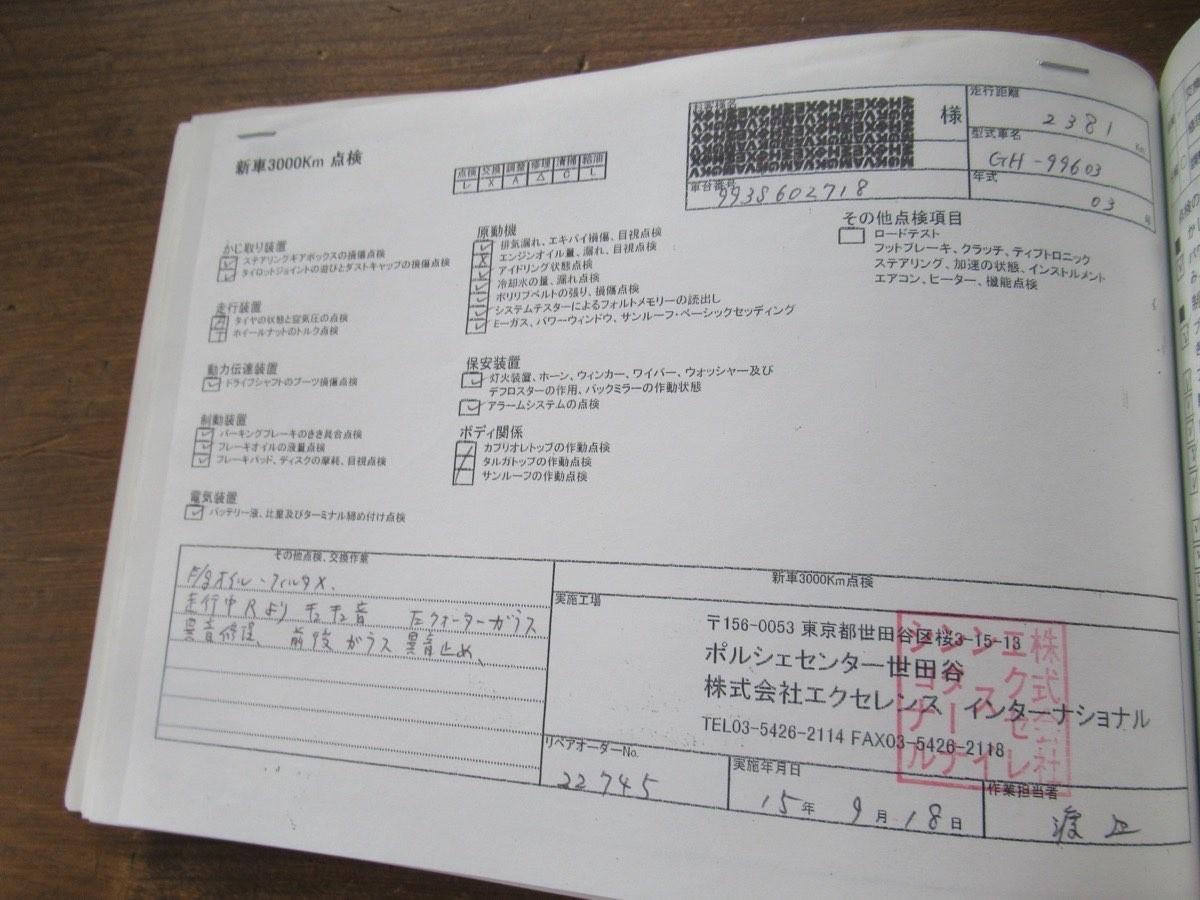 新車3000Km 点検
点検 交換 調整 修理 清掃 給油
レ X A △ C L
お客様名
様
走行距離
2381 Km
型式車名
GH-99603
車台番号
993S602718
年式
03
かじ取り装置
ステアリングギアボックスの損傷点検
タイロットジョイントの遊びとダストキャップの損傷点検
走行装置
タイヤの状態と空気圧の点検
ホイールナットのトルク点検
動力伝達装置
ドライブシャフトのブーツ損傷点検
制動装置
パーキングブレーキのきき具合点検
ブレーキオイルの液量点検
ブレーキパッド、ディスクの摩耗、目視点検
電気装置
バッテリー液、比重及びターミナル締め付け点検
原動機
排気漏れ、エキパイ損傷、目視点検
エンジンオイル量、漏れ、目視点検
アイドリング状態点検
冷却水の量、漏れ点検
ポリリブベルトの張り、損傷点検
システムテスターによるフォルトメモリーの読出し
E-ガス、パワーウィンドウ、サンルーフ・ベーシックセッディング
保安装置
灯火装置、ホーン、ウィンカー、ワイパー、ウォッシャー及び
デフロスターの作用、バックミラーの作動状態
アラームシステムの点検
ボディ関係
カブリオレトップの作動点検
タルガトップの作動点検
サンルーフの作動点検
その他点検項目
ロードテスト
フットブレーキ、クラッチ、ティプトロニック
ステアリング、加速の状態、インストルメント
エアコン、ヒーター、機能点検
その他点検、交換作業
オイル・フィルタX、
走行中Rより チュチュ音 左クォーターガラス
異音修理、前後ガラス異音止め、
新車3000Km点検
実施工場
〒156-0053 東京都世田谷区桜3-15-13
ポルシェセンター世田谷
株式会社エクセレンス インターナショナル
TEL03-5426-2114 FAX03-5426-2118
リペアオーダーNo.
22745
実施年月日
15年 9月 18日
作業担当者
渡辺